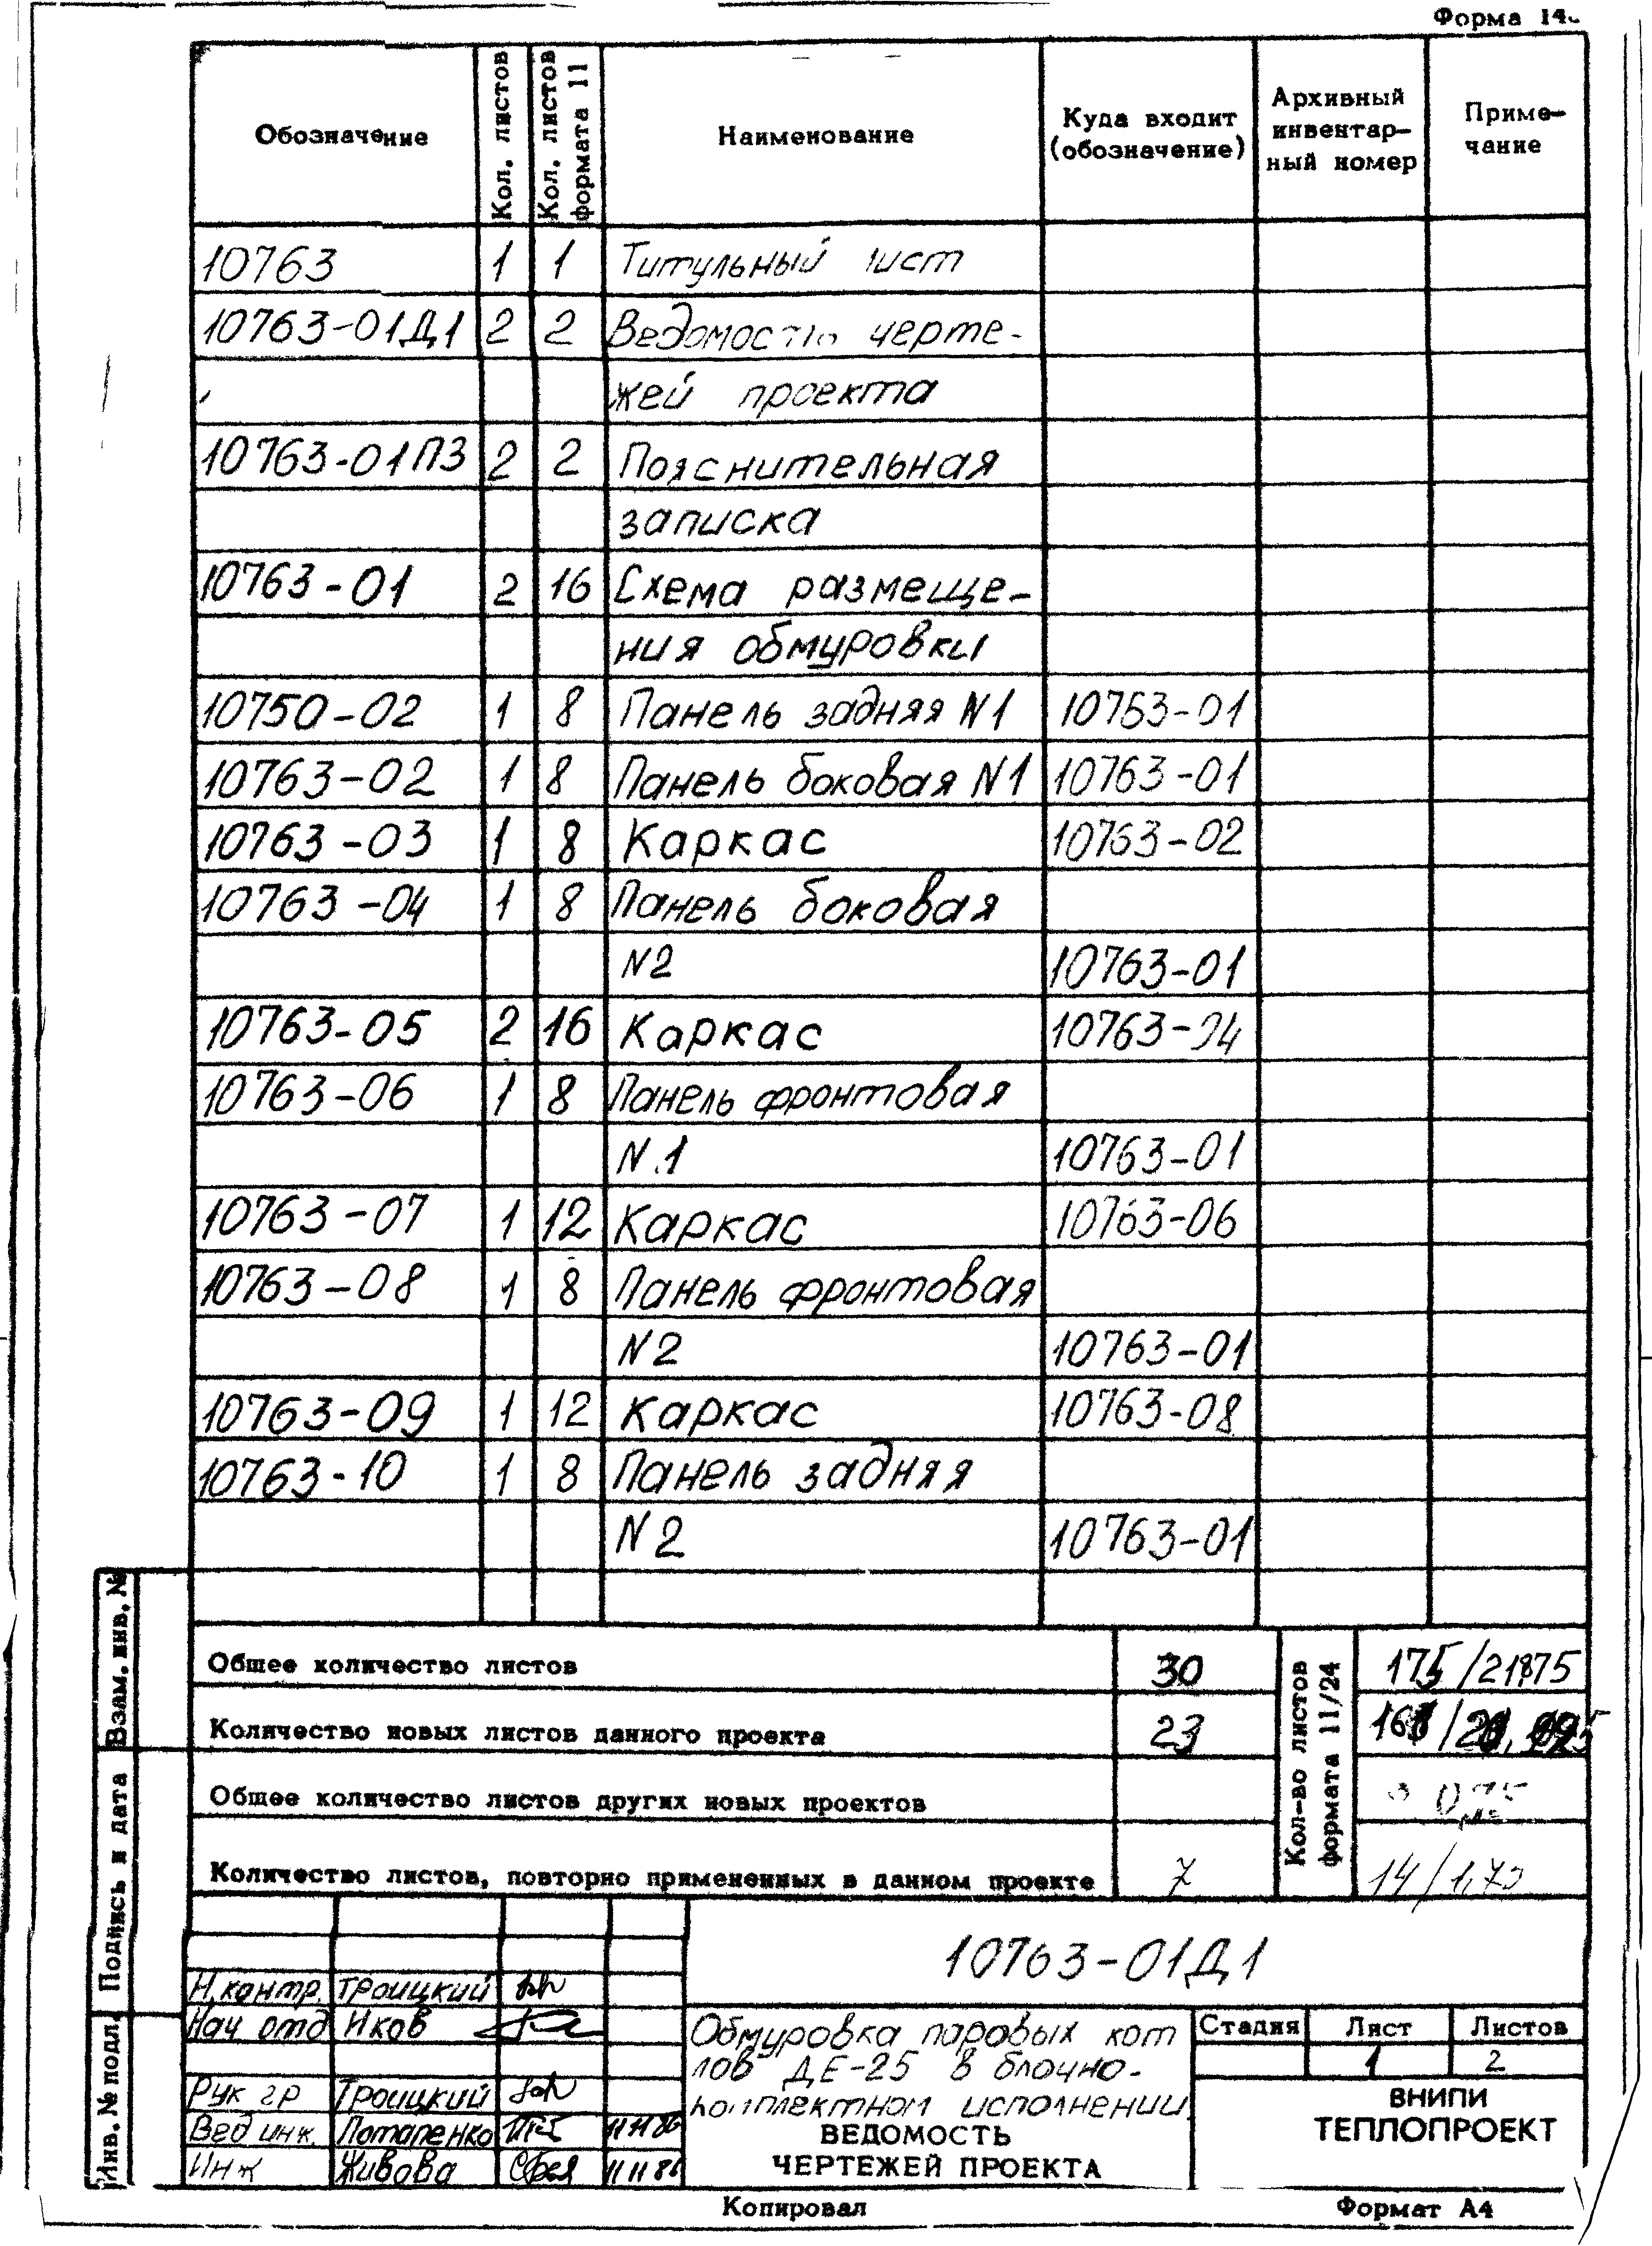 Форма 14
Обозначение Кол. листов Кол. листов формата 11 Наименование Куда входит (обозначение) Архивный инвентар- ный номер Приме- чание
10763 1 1 Титульный лист
10763-01Д1 2 2 Ведомость черте-
жей проекта
10763-01ПЗ 2 2 Пояснительная
записка
10763-01 2 16 Схема размеще-
ния обмуровки
10750-02 1 8 Панель задняя N1 10763-01
10763-02 1 8 Панель боковая N1 10763-01
10763-03 1 8 Каркас 10763-02
10763-04 1 8 Панель боковая
N2 10763-01
10763-05 2 16 Каркас 10763-04
10763-06 1 8 Панель фронтовая
N.1 10763-01
10763-07 1 12 Каркас 10763-06
10763-08 1 8 Панель фронтовая
N2 10763-01
10763-09 1 12 Каркас 10763-08
10763-10 1 8 Панель задняя
N2 10763-01
Общее количество листов 30 Кол-во листов формата 11/24 175/21,875
Количество новых листов данного проекта 23
Общее количество листов других новых проектов
Количество листов, повторно примененных в данном проекте 7 14/
Взам. инв. №
Подпись и дата
Инв. № подл.
10763-01Д1
Н.контр. Троицкий
Нач отд Иков
Рук гр Троицкий
Вед инж. Потапенко 11 11 86
Инж Живова 11 11 86
Обмуровка паровых кот
лов ДЕ-25 в блочно-
комплектном исполнении.
ВЕДОМОСТЬ
ЧЕРТЕЖЕЙ ПРОЕКТА
Стадия Лист Листов
1 2
ВНИПИ
ТЕПЛОПРОЕКТ
Копировал Формат А4